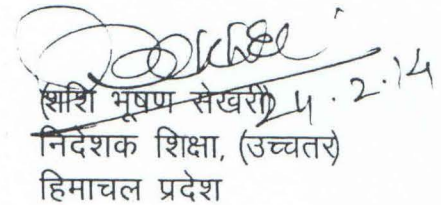 (शशि भूषण सेखरी) 24.2.14
निदेशक शिक्षा, (उच्चतर)
हिमाचल प्रदेश